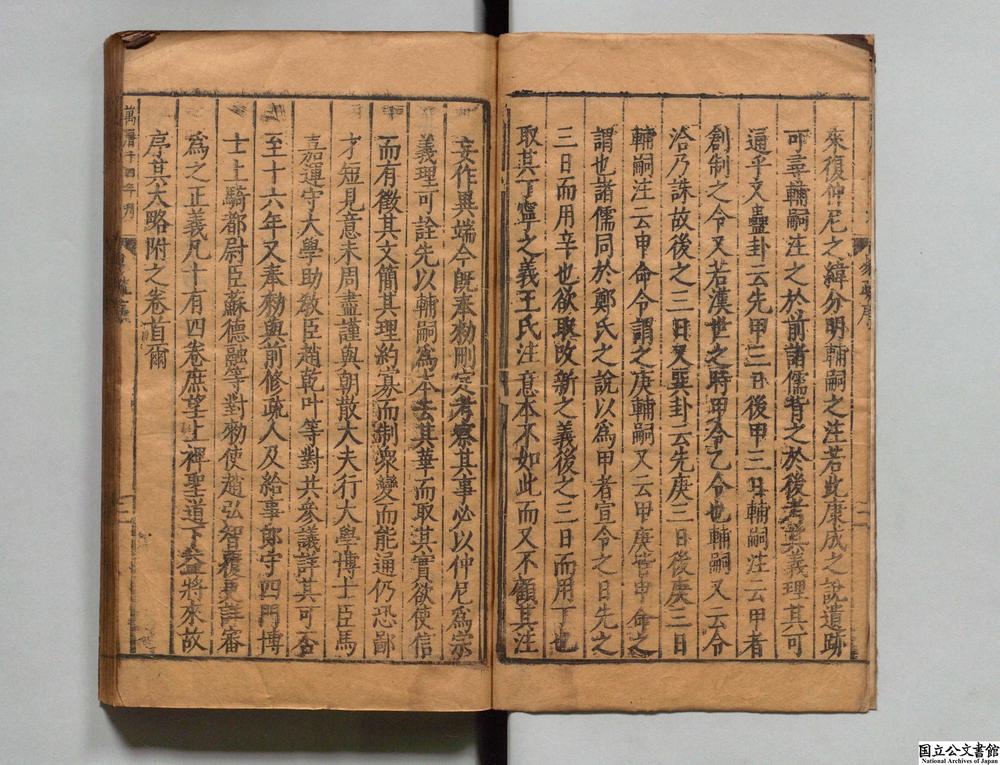 來復仲尼之緯分明輔嗣之注若此康成之說遺跡
可尋輔嗣注之於前諸儒背之於後考其義理其可
通乎又蠱卦云先甲三日後甲三日輔嗣注云甲者
創制之令又若漢世之時甲令乙令也輔嗣又云令
洽乃誅故後之三日又巽卦云先庚三日後庚三日
輔嗣注云申命令謂之庚輔嗣又云甲庚皆申命之
謂也諸儒同於鄭氏之說以為甲者宣令之日先之
三日而用辛也欲取改新之義後之三日而用丁也
取其丁寧之義王氏注意本不如此而又不顧其注
妄作異端今旣奉勑刪定考察其事必以仲尼爲宗
義理可詮先以輔嗣爲本去其華而取其實欲使信
而有徵其文簡其理約寡而制衆變而能通仍恐鄙
才短見意未周盡謹與朝散大夫行大學博士臣馬
嘉運守大學助教臣趙乾叶等對共參議詳其可否
至十六年又奉勑與前修疏人及給事郎守四門博
士上騎都尉臣蘇德融等對勑使趙弘智覆更詳審
爲之正義凡十有四卷庶望上裨聖道下益將來故
序其大略附之卷首爾
萬曆十四年刊
国立公文書館
National Archives of Japan